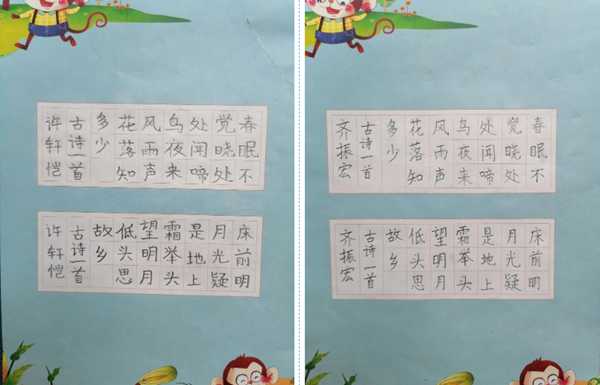 春眠不
觉晓处
处闻啼
鸟夜来
风雨声
花落知
多少
古诗一首
许轩恺
床前明
月光疑
是地上
霜举头
望明月
低头思
故乡
古诗一首
许轩恺
春眠不
觉晓处
处闻啼
鸟夜来
风雨声
花落知
多少
古诗一首
齐振宏
床前明
月光疑
是地上
霜举头
望明月
低头思
故乡
古诗一首
齐振宏